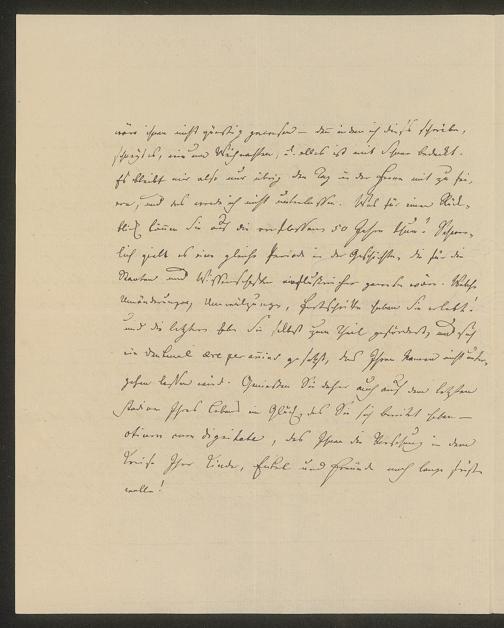 wäre ihnen nicht günstig gewesen – denn indem ich dieses schreibe,
schneyt es, wie um Weihnachten, u. alles ist mit Schnee bedeckt.
Es bleibt mir also nur übrig den Tag in der Ferne mit zu fei-
ern, und das werde ich nicht unterlassen. Was für einen Rück-
blick können Sie auf die verflossenen 50 Jahre thun! Schwer-
lich giebt es eine gleiche Periode in der Geschichte, die für die
Staaten und Wissenschaften einflußreicher gewesen wäre. Welche
Umänderungen, Umwälzungen, Fortschritte haben Sie erlebt!
und die letztern haben Sie selbst zum Theil gefördert, und sich
ein denkmal aere perennius gesetzt, das Ihren Namen nicht unter-
gehen lassen wird. Genießen Sie daher auch auf dem letzten
Stadium Ihres Lebens das Glück, das Sie sich bereitet haben –
otium cum dignitate, das Ihnen die Vorsehung in dem
Kreise Ihrer Kinder, Enkel und Freunde noch lange fristen
wolle!